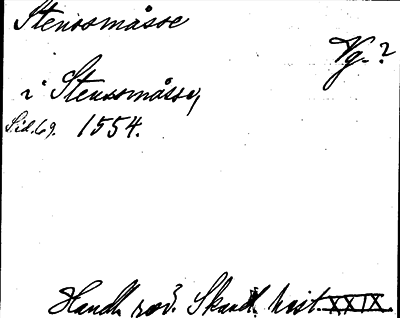 Stenssmåsse
Vg. ?
i Stenssmåsse,
Sid. 69. 1554.
Handl. rör. Skand. hist. XXIX.